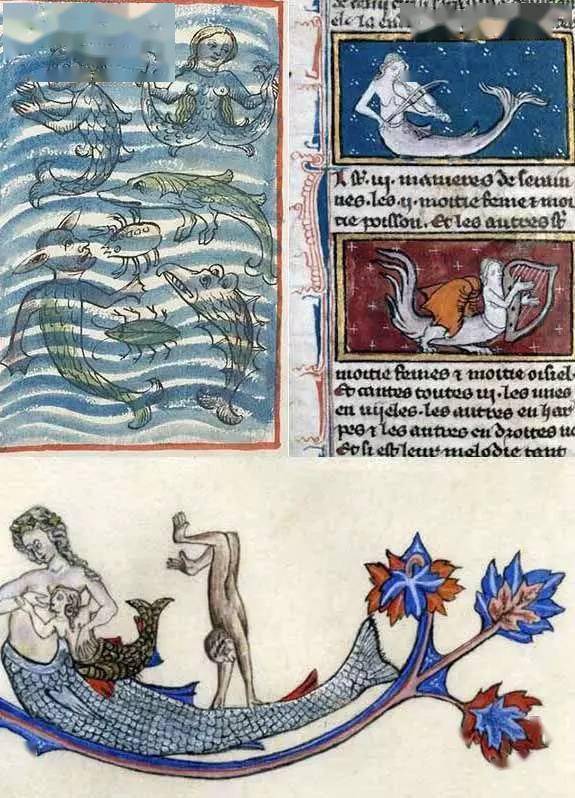 iij. manieres de serain
nes. les .ij. moitie feme ⁊ moi
tie poisson. Et les autres st
moitie femes ⁊ moitie oisiel.
Et cantes toutes iij. les unes
en vijeles. les autres en har
pes ⁊ les autres en
Et si est leur melodie tant